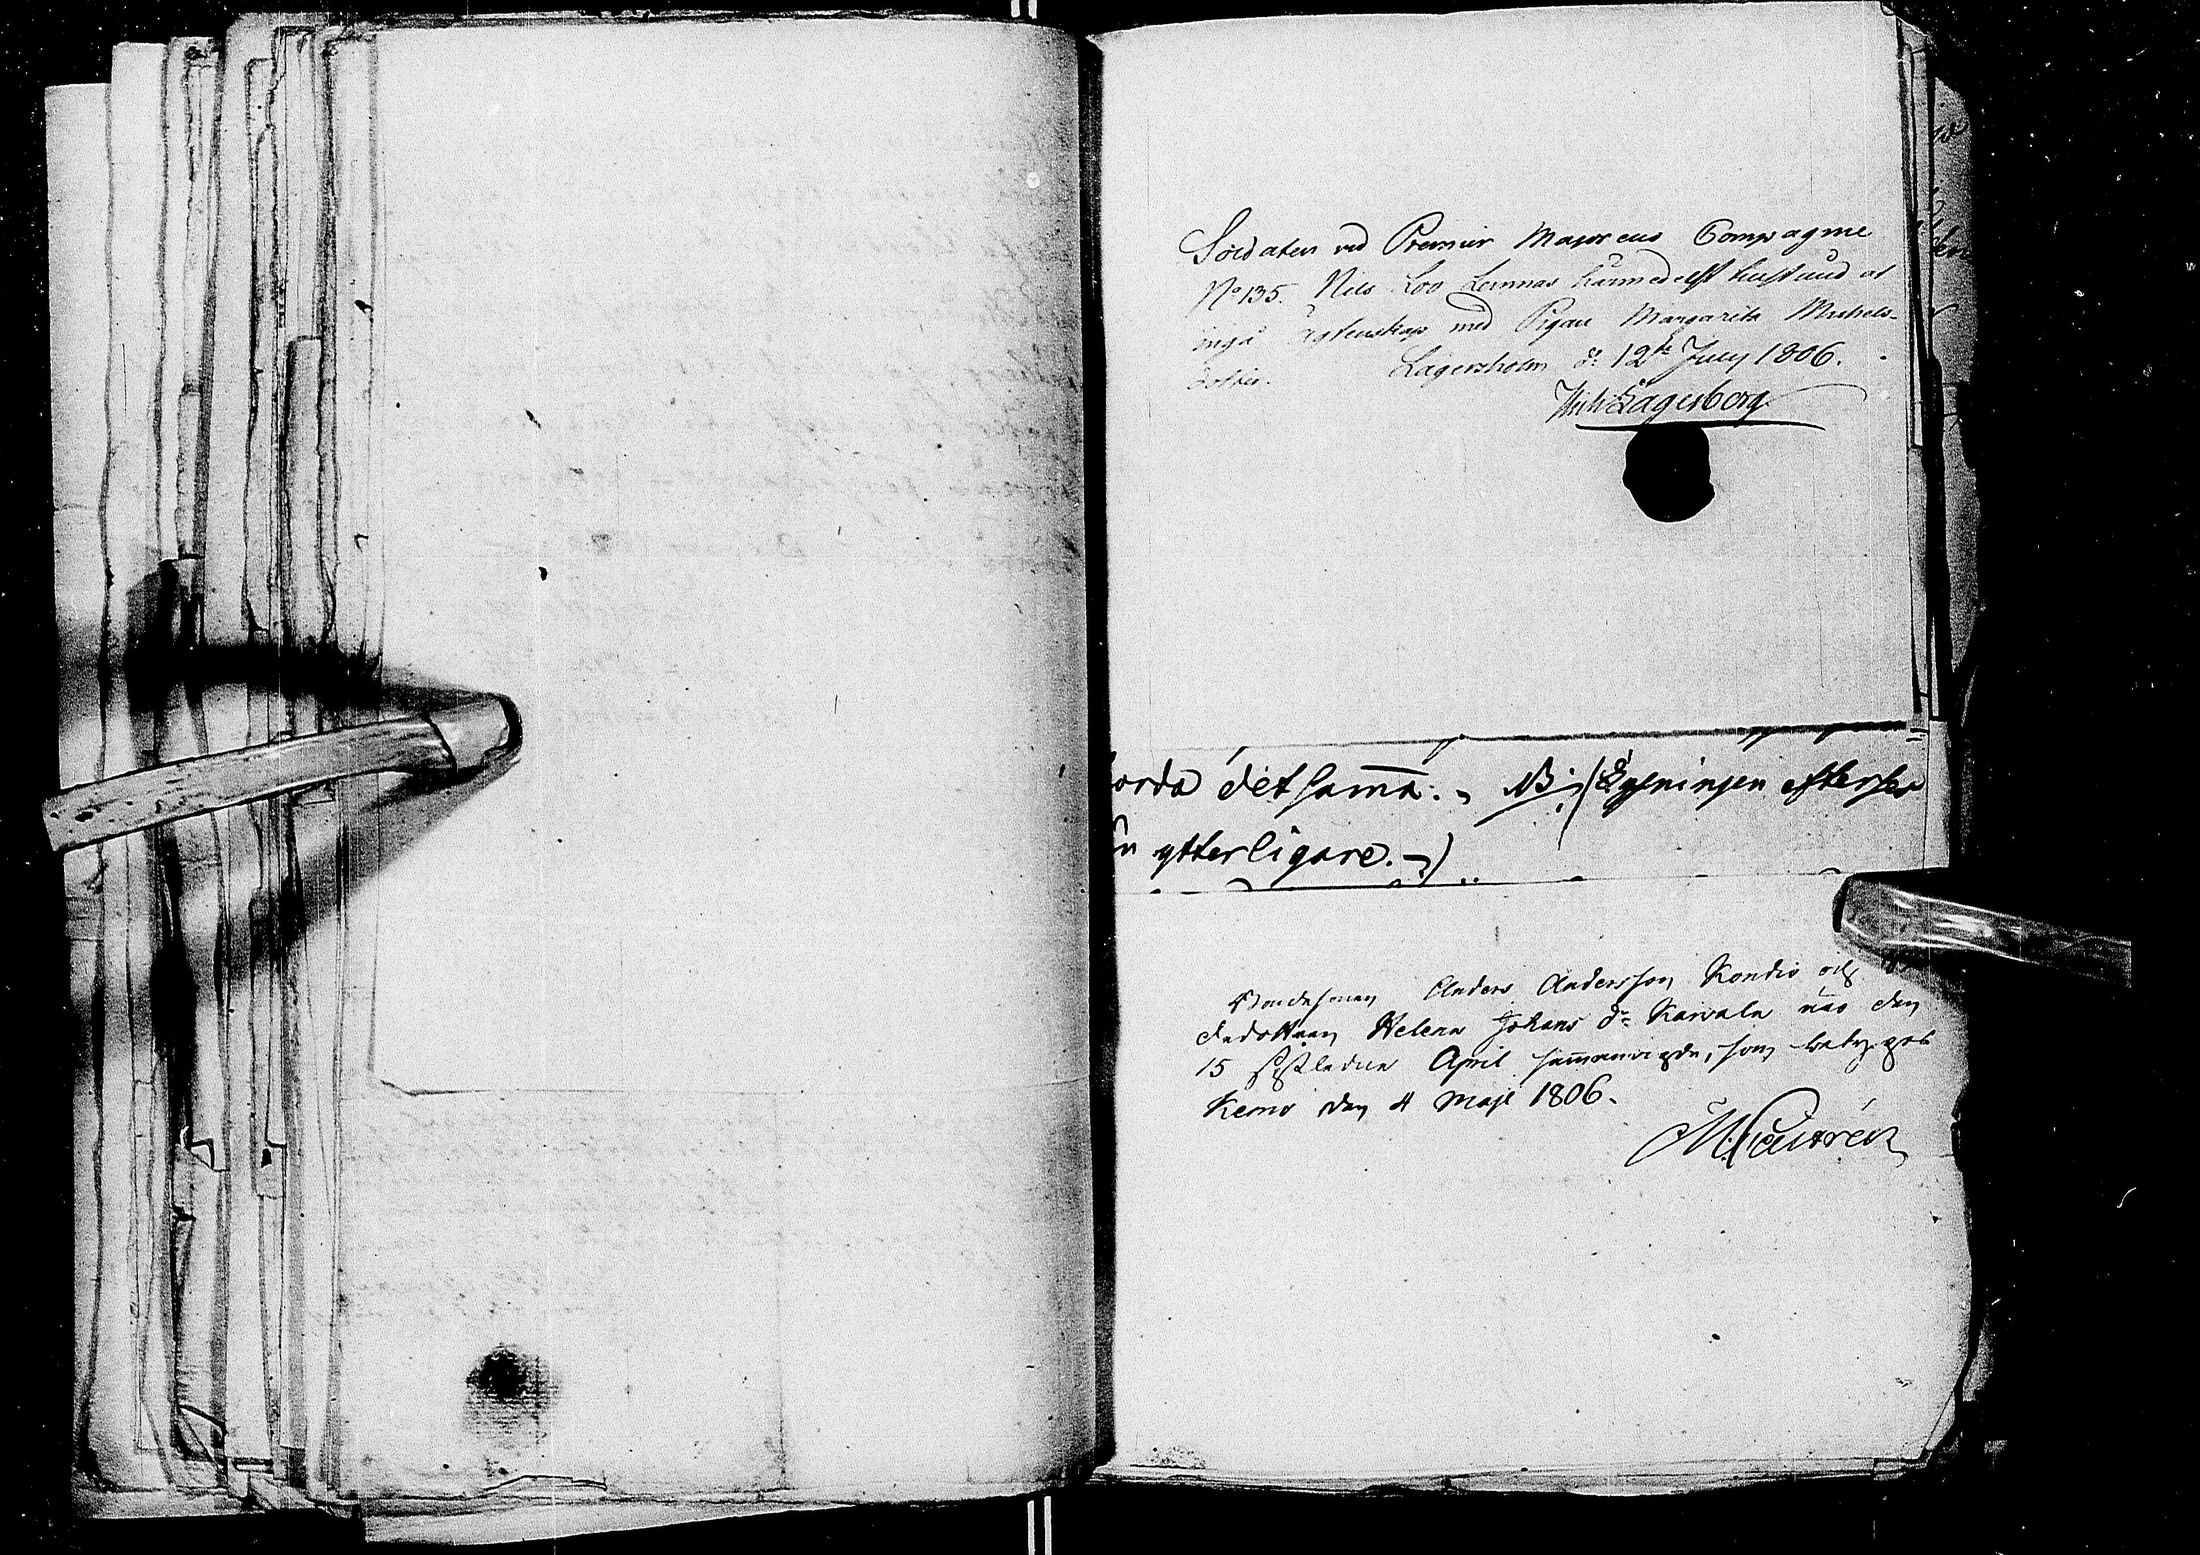 Soldaten vid Premier Majorens Compagnie
No 135. Nils Loo Lemnas härmedelst tilstånd at
ingå ägtenskap med Pigan Margarita Michels-
dotter. Lagersholm d: 12te July 1806.
Lagerborg
orda detsamma. NB. (Lysningen efterser
ytterligare.)
Bondesonen Anders Andersson Kondio och
dedottren Helena Johans dr Kaivala äro den
15 sistledne April sammanvigde, som betygas
Kemo den 4 Maji 1806.
M. Castrén